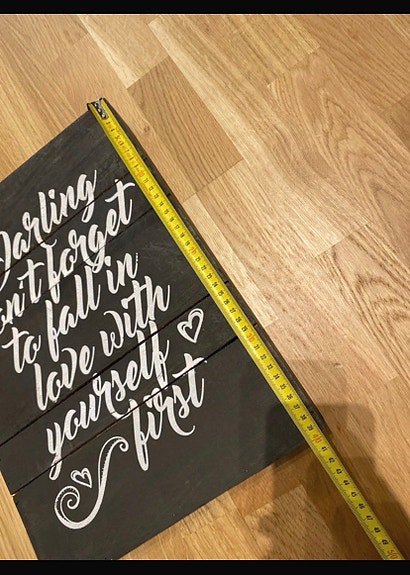 Darling
on't forget
to fall in
love with
yourself
first